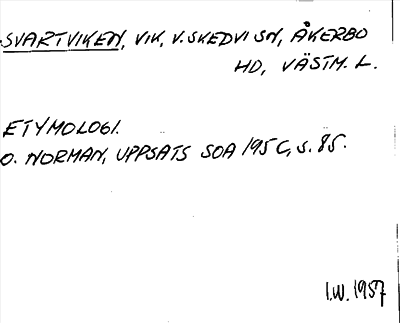 SVARTVIKEN, VIK, V. SKEDVI SN, ÅKERBO
HD, VÄSTM. L.
ETYMOLOGI.
O. NORMAN, UPPSATS SOA 195C, S. 85.
I.W. 1957